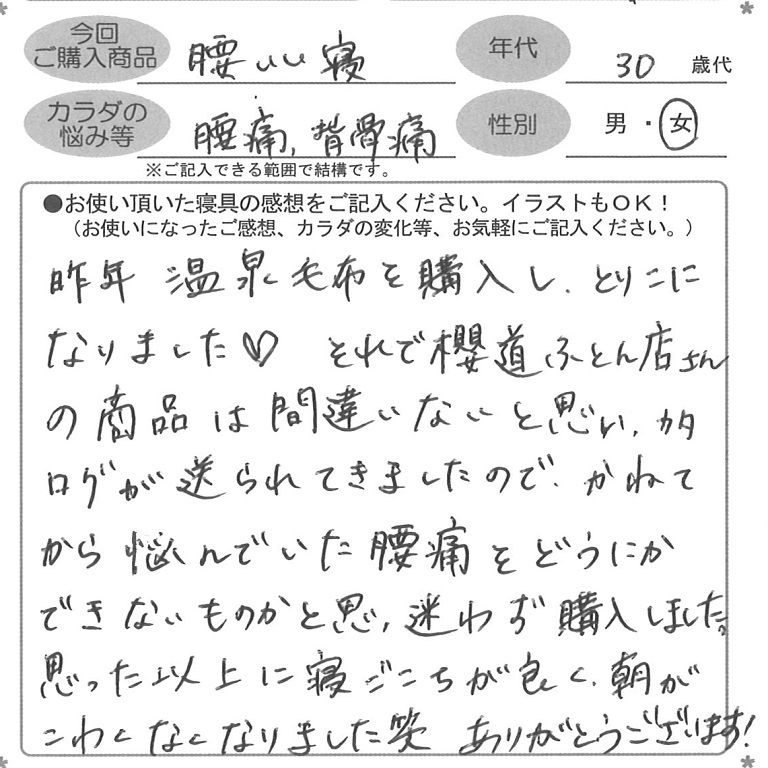 今回
ご購入商品
腰いい寝
年代
30 歳代
カラダの
悩み等
腰痛，背骨痛
性別
男・女
※ご記入できる範囲で結構です。
●お使い頂いた寝具の感想をご記入ください。イラストもOK！
（お使いになったご感想、カラダの変化等、お気軽にご記入ください。）
昨年 温泉毛布を購入し、とりこに
なりました♡ それで櫻道ふとん店さん
の商品は間違いないと思い、カタ
ログが送られてきましたので、かねて
から悩んでいた腰痛をどうにか
できないものかと思，迷わず購入しました。
思った以上に寝ごこちが良く、朝が
こわくなくなりました笑 ありがとうございます！